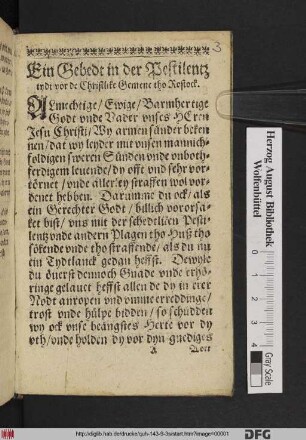 3
Ein Gebedt in der Pestilentz
tydt vor de Christlike Gemene tho Rostock.
ALmechtige / Ewige / Barmhertige
Godt vnde Vader vnses HEren
Jesu Christi / Wy armen sünder beken
nen / dat wy leyder mit vnsen mannich-
foldigen sweren Sünden vnde vnboth-
ferdigem leuende / dy offt vnd sehr vor-
törnet / vnde allerley straffen wol vor-
denet hebben. Darumme du ock / als
ein Gerechter Godt / billich vororsa-
ket bist / vns mit der schedeliken Pesti-
lentz vnde andern Plagen tho Huß tho
sökende vnde tho straffende / als du nu
ein Tydtlanck gedan heffst. Dewyle
du öuerst dennoch Gnade vnde erhö-
ringe gelauet heffst allen de dy in erer
Nodt anropen vnd vmme erreddinge /
trost vnde hülpe bidden / so schudden
wy ock vnse beängstes Herte vor dy
vth / vnde holden dy vor dyn gnediges
A Wort
Herzog August Bibliothek
Wolfenbüttel
0
1
2
3
4
Gray Scale
http://diglib.hab.de/drucke/quh-143-9-3s/start.htm?image=00001
DFG